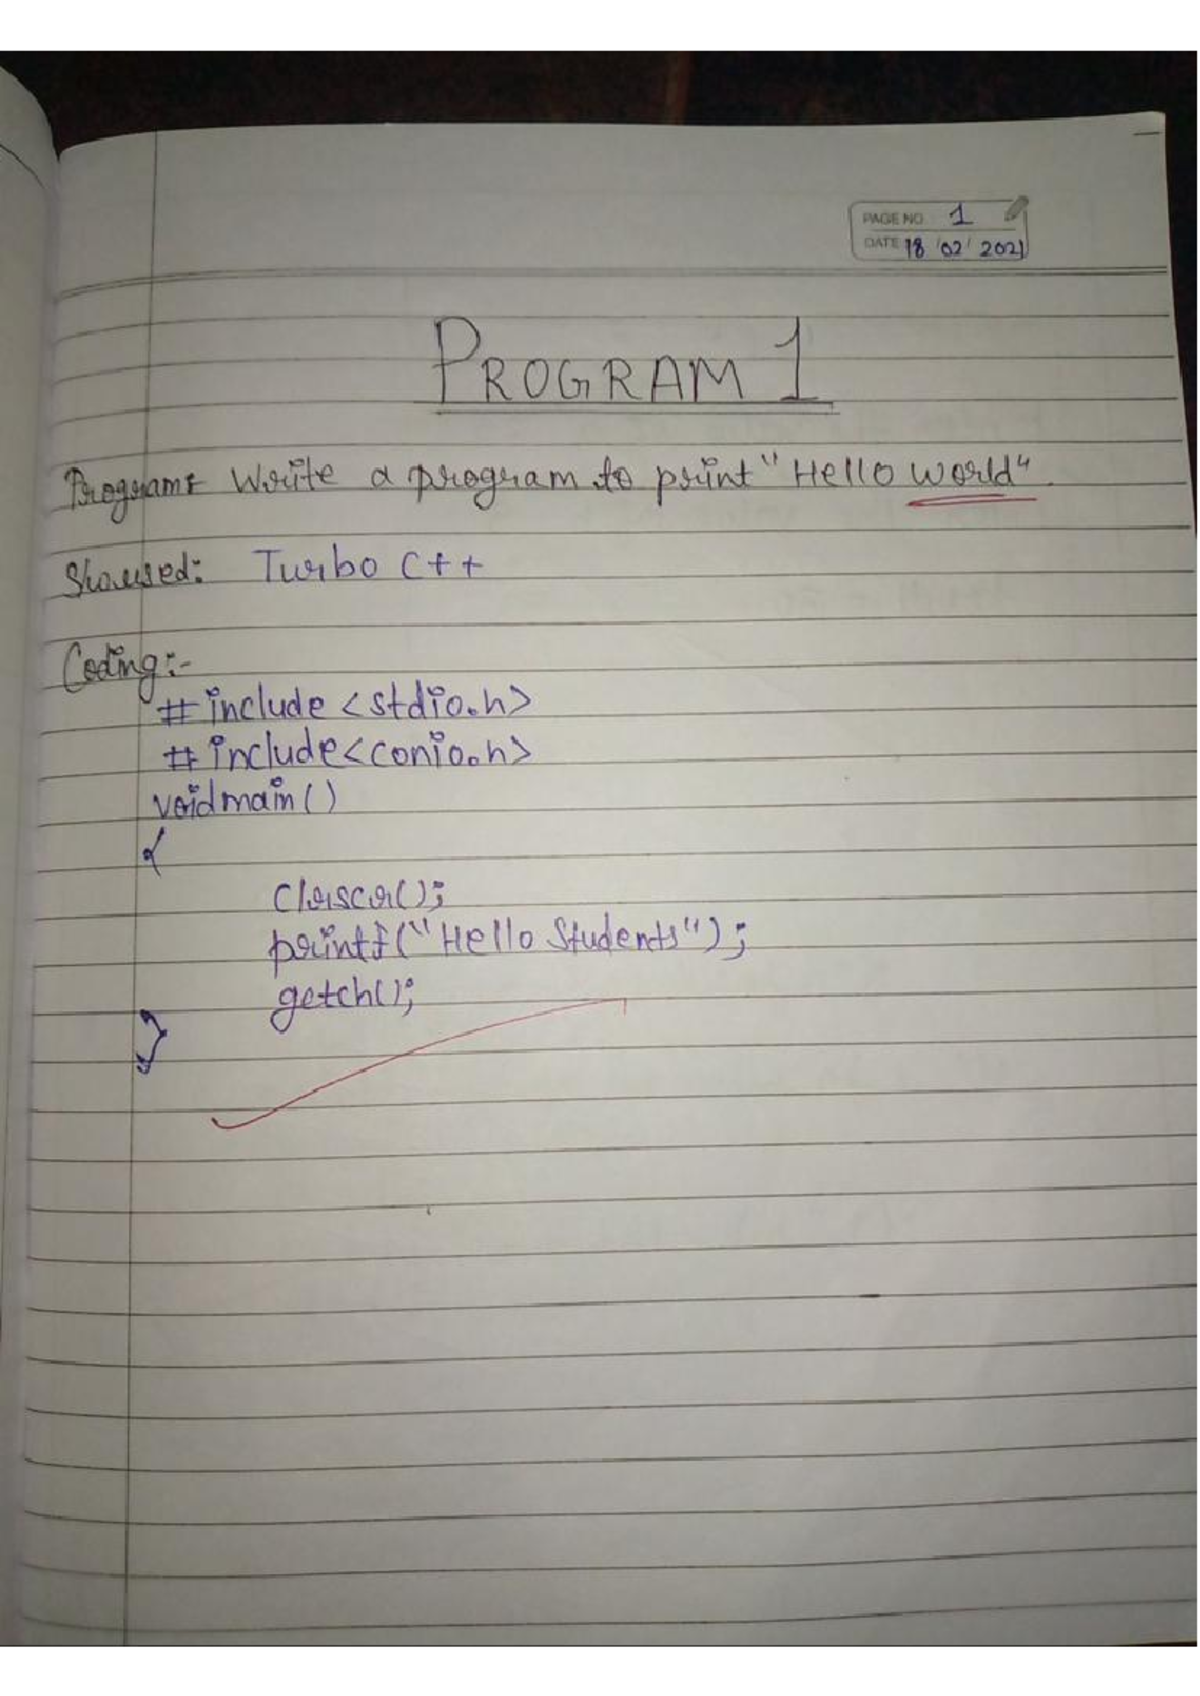 PAGE NO 1
DATE 18/02/2021
PROGRAM 1
Program: Write a program to print "Hello world".
used: Turbo C++
Coding:-
#include <stdio.h>
#include<conio.h>
void main()
{
clrscr();
printf("Hello Students");
getch();
}